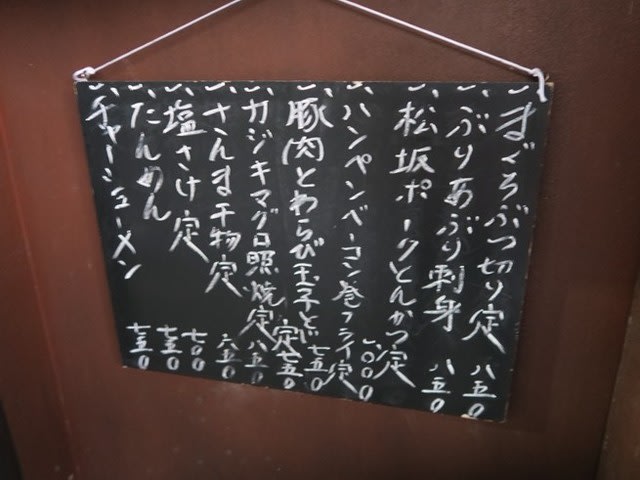 一、まぐろぶつ切り定 八五0
一、ぶりあぶり刺身 八五0
一、松坂ポークとんかつ定 一,000
一、ハンペンベーコン巻フライ定 七五0
一、豚肉とわらび玉子とじ定 七五0
一、カジキマグロ照焼定 八五0
一、さんま干物定 六五0
一、塩さけ定 七00
一、たんめん 七五0
一、チャーシューメン 七五0